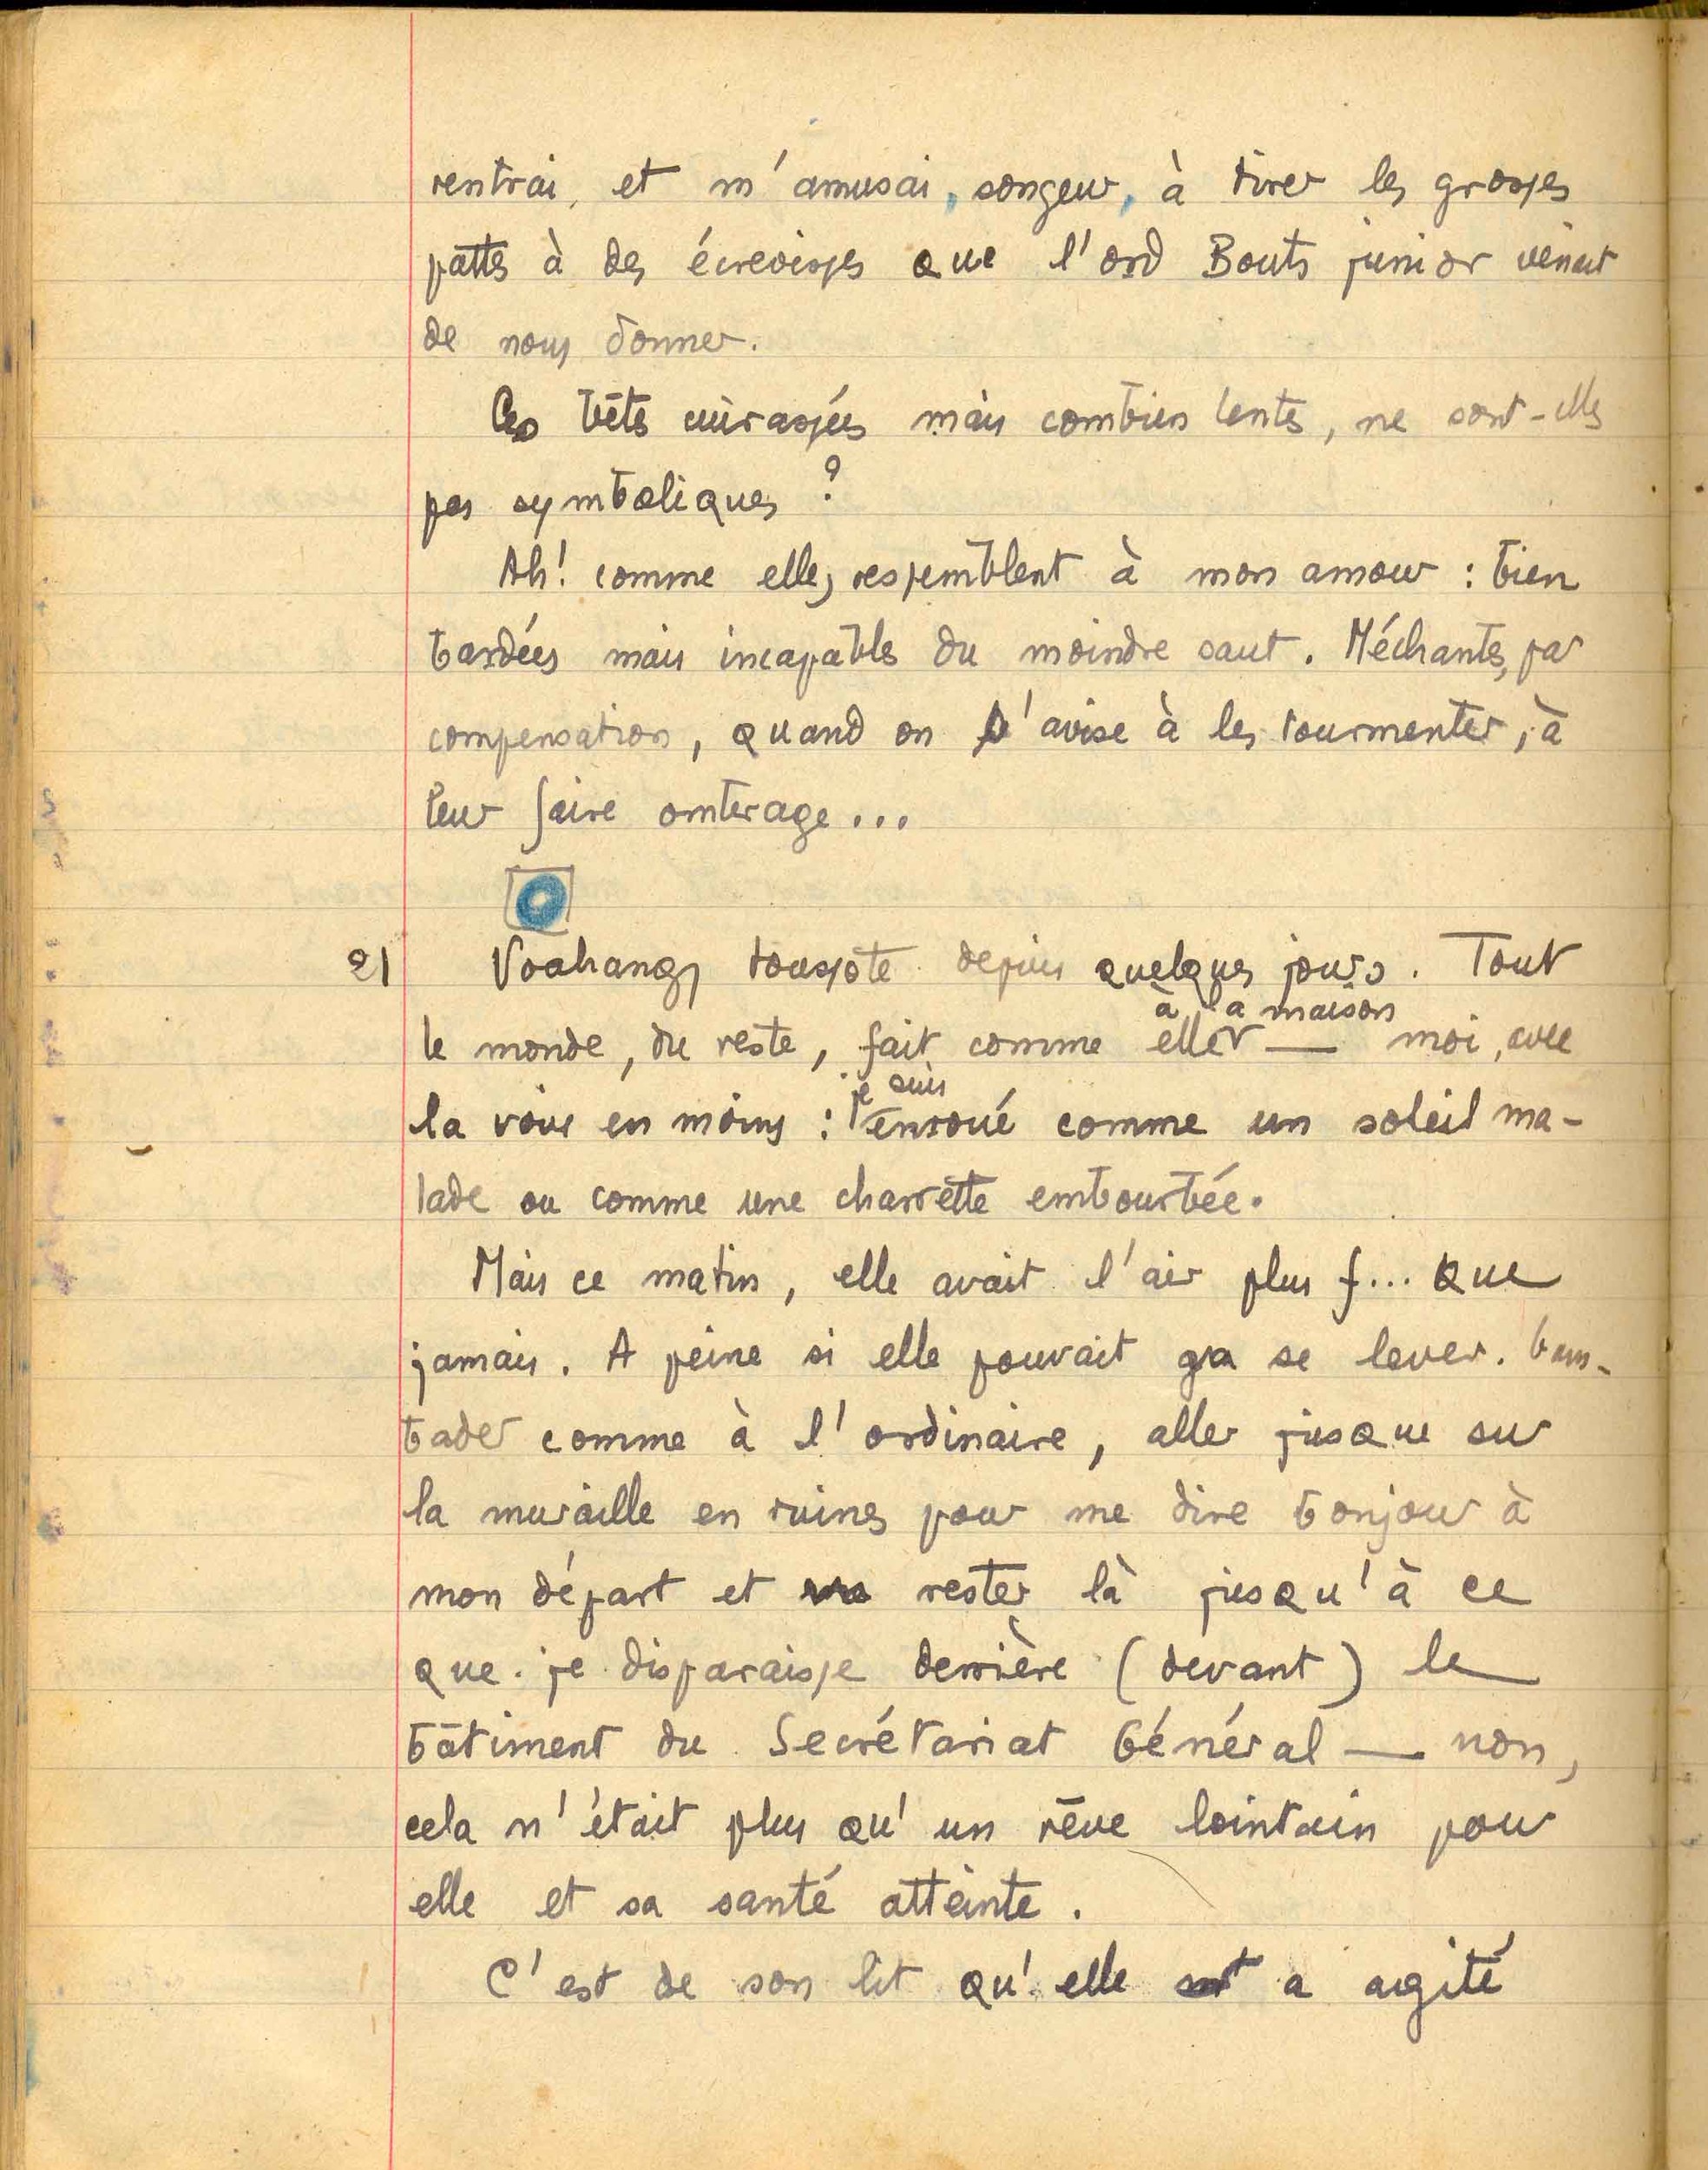 rentrai, et m'amusai, songeur, à tirer les grosses
pattes à des écrevisses que l'ord Bouts junior venait
de nous donner.
Ces bêtes cuirassées mais combien lentes, ne sont-elles
pas symboliques ?
Ah! comme elles ressemblent à mon amour : bien
bardées mais incapables du moindre saut. Méchantes, par
compensation, quand on s'avise à les tourmenter, à
leur faire ombrage...
21 Voahangy toussote depuis quelques jours. Tout
à la maison
le monde, du reste, fait comme elle — moi, avec
je suis
la voix en moins : enroué comme un soleil ma-
lade ou comme une charrette embourbée.
Mais ce matin, elle avait l'air plus f... que
jamais. A peine si elle pouvait se lever. Gam-
bader comme à l'ordinaire, aller jusque sur
la muraille en ruines pour me dire bonjour à
mon départ et rester là jusqu'à ce
que je disparaisse derrière (devant) le
bâtiment du Secrétariat Général — non,
cela n'était plus qu'un rêve lointain pour
elle et sa santé atteinte.
C'est de son lit qu'elle a agité